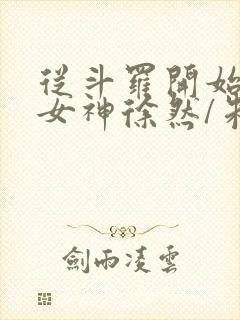 從斗羅開始
女神徐然/
劍雨凌雲